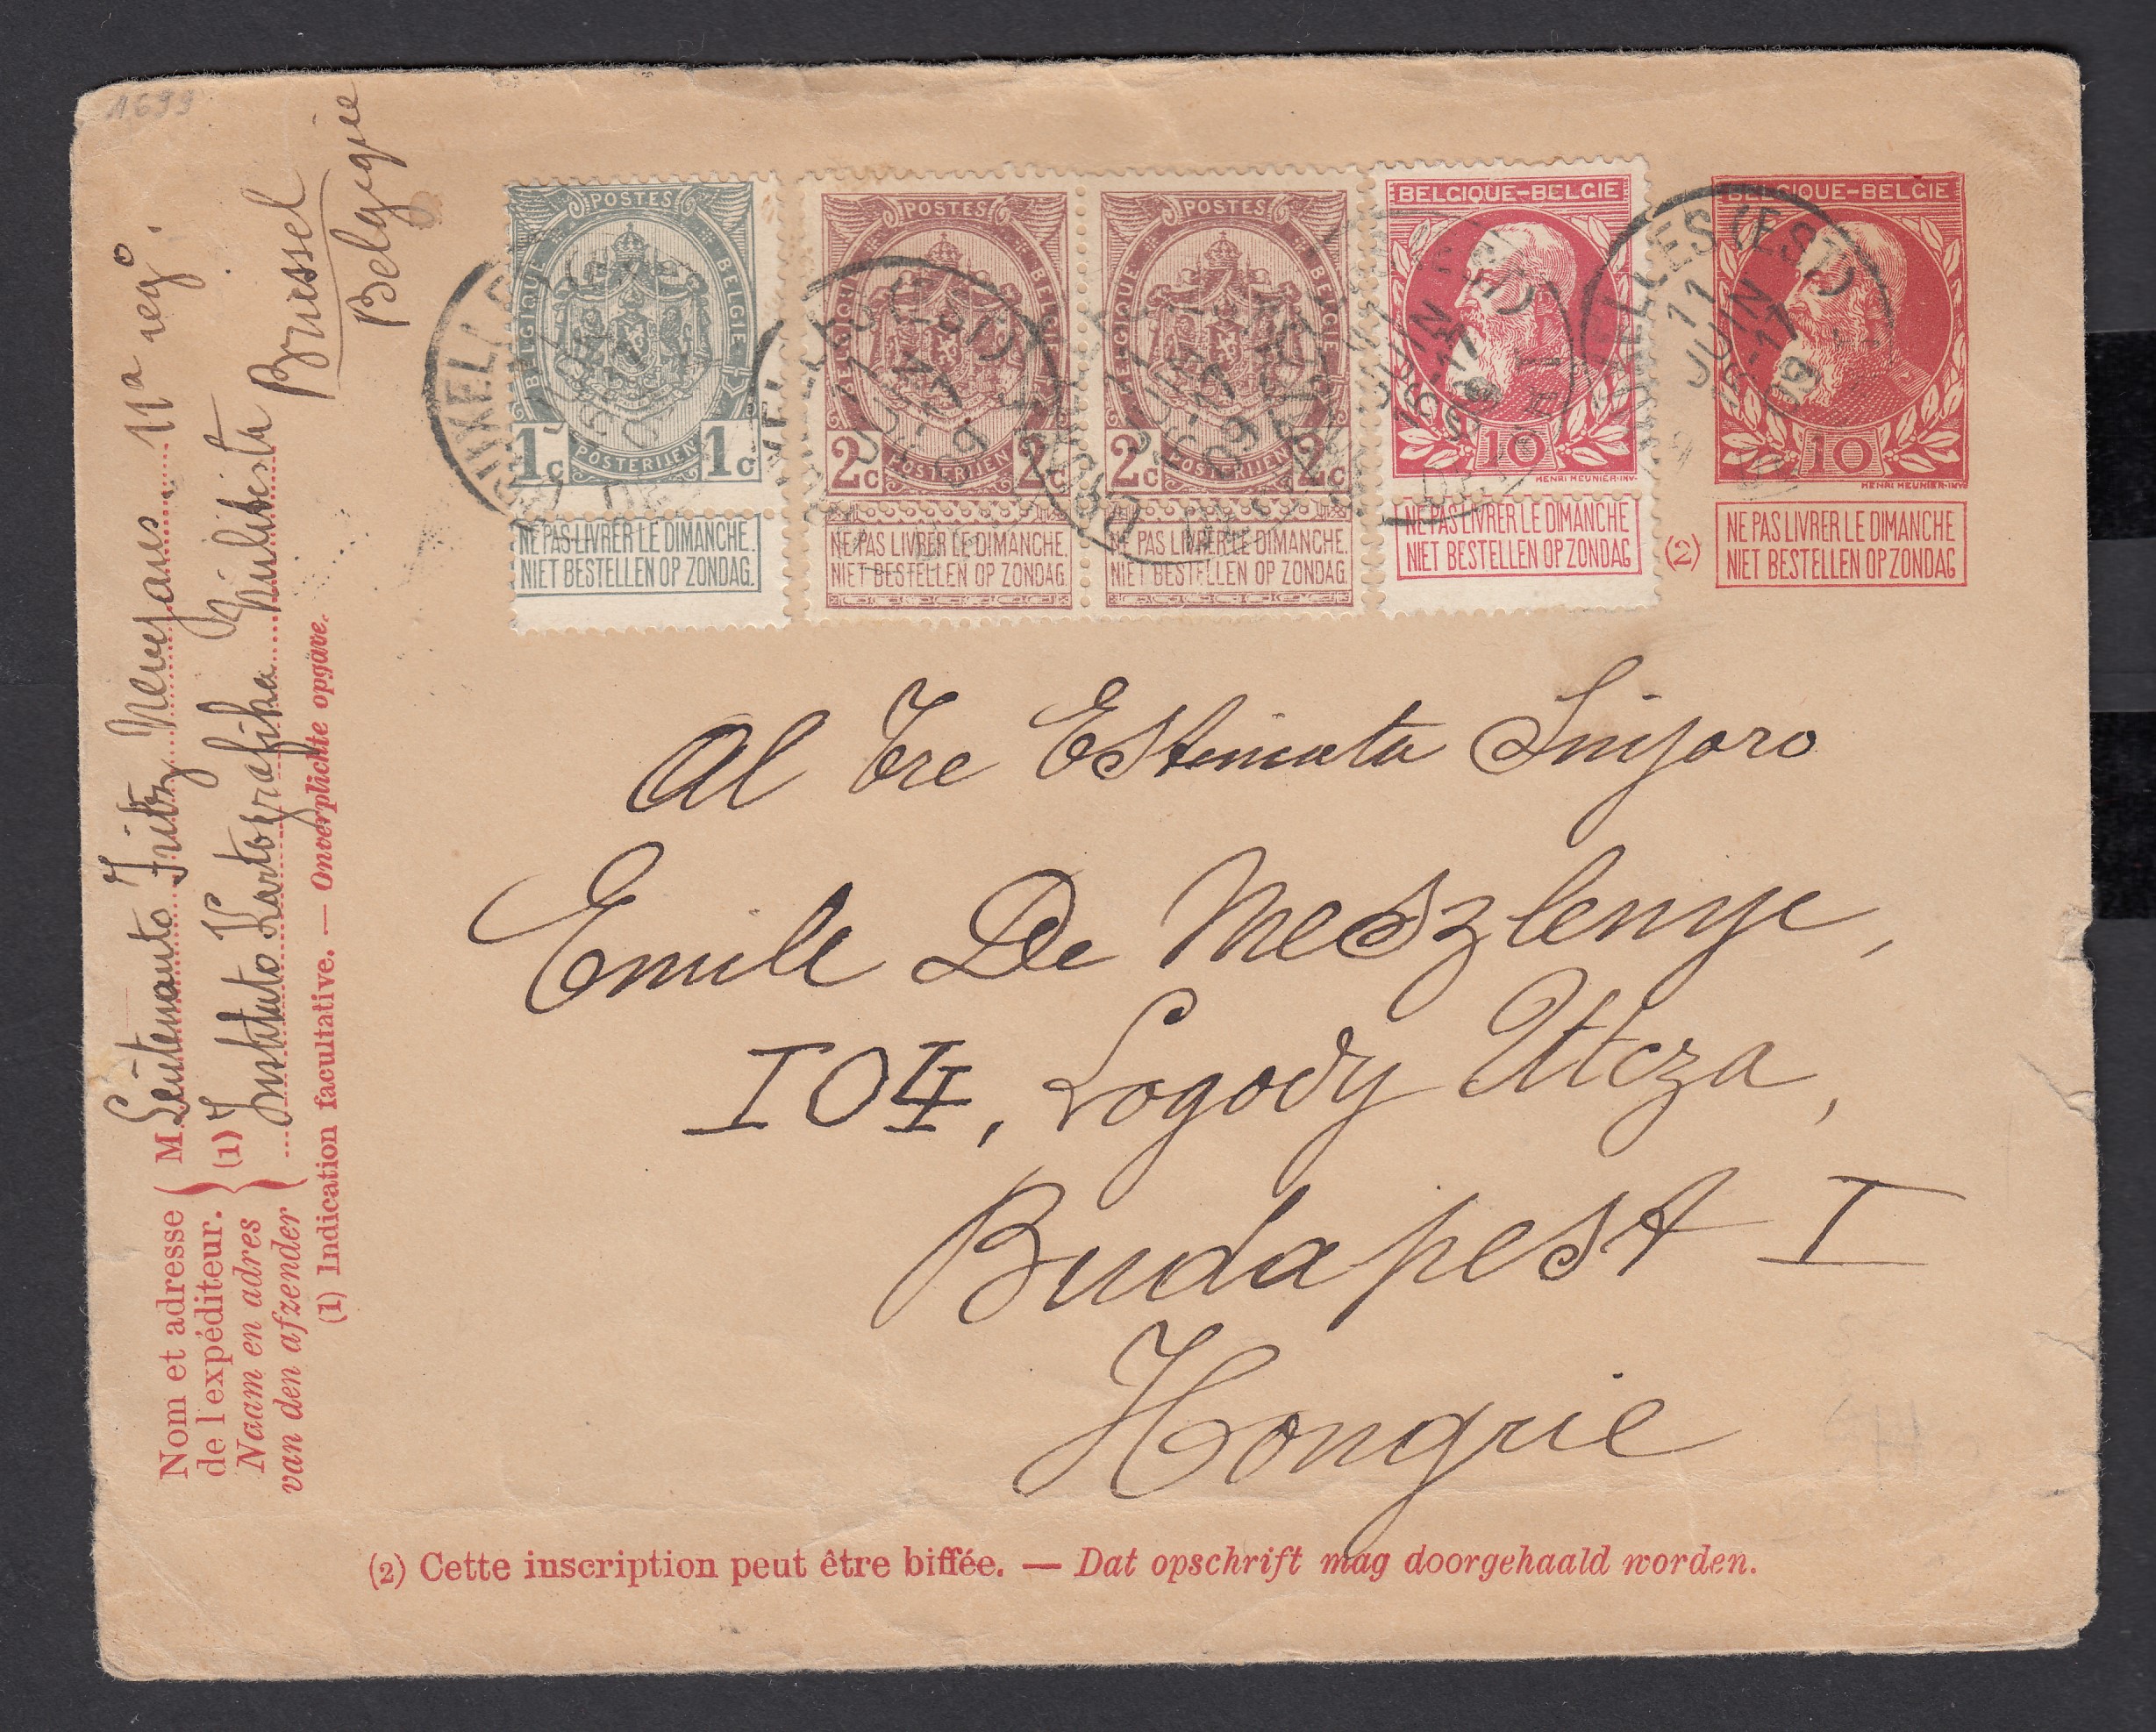 1699
POSTES
BELGIQUE
BELGIE
1c 1c
POSTERIJEN
NE PAS LIVRER LE DIMANCHE.
NIET BESTELLEN OP ZONDAG.
POSTES
BELGIQUE
BELGIE
2c 2c
POSTERIJEN
NE PAS LIVRER LE DIMANCHE.
NIET BESTELLEN OP ZONDAG
POSTES
BELGIQUE
BELGIE
2c 2c
POSTERIJEN
NE PAS LIVRER LE DIMANCHE.
NIET BESTELLEN OP ZONDAG
BELGIQUE-BELGIE
10
HENRI MEUNIER·INV·
NE PAS LIVRER LE DIMANCHE
NIET BESTELLEN OP ZONDAG
(2)
BELGIQUE-BELGIE
BRUXELLES (EST)
11
JUIN
16-17
10
HENRI MEUNIER·INV·
NE PAS LIVRER LE DIMANCHE
NIET BESTELLEN OP ZONDAG
Al Tre Estimata Sinjoro
Emile De Meszlenye,
104, Logody Utcza,
Budapest I
Hongrie
Nom et adresse
de l'expéditeur. (1)
Naam en adres
van den afzender
M. Leŭtenanto Fritz 11a reg°.
Instituto Kartografika Militista
Brussel
Belgique
(1) Indication facultative. — Onverplichte opgave.
(2) Cette inscription peut être biffée. — Dat opschrift mag doorgehaald worden.